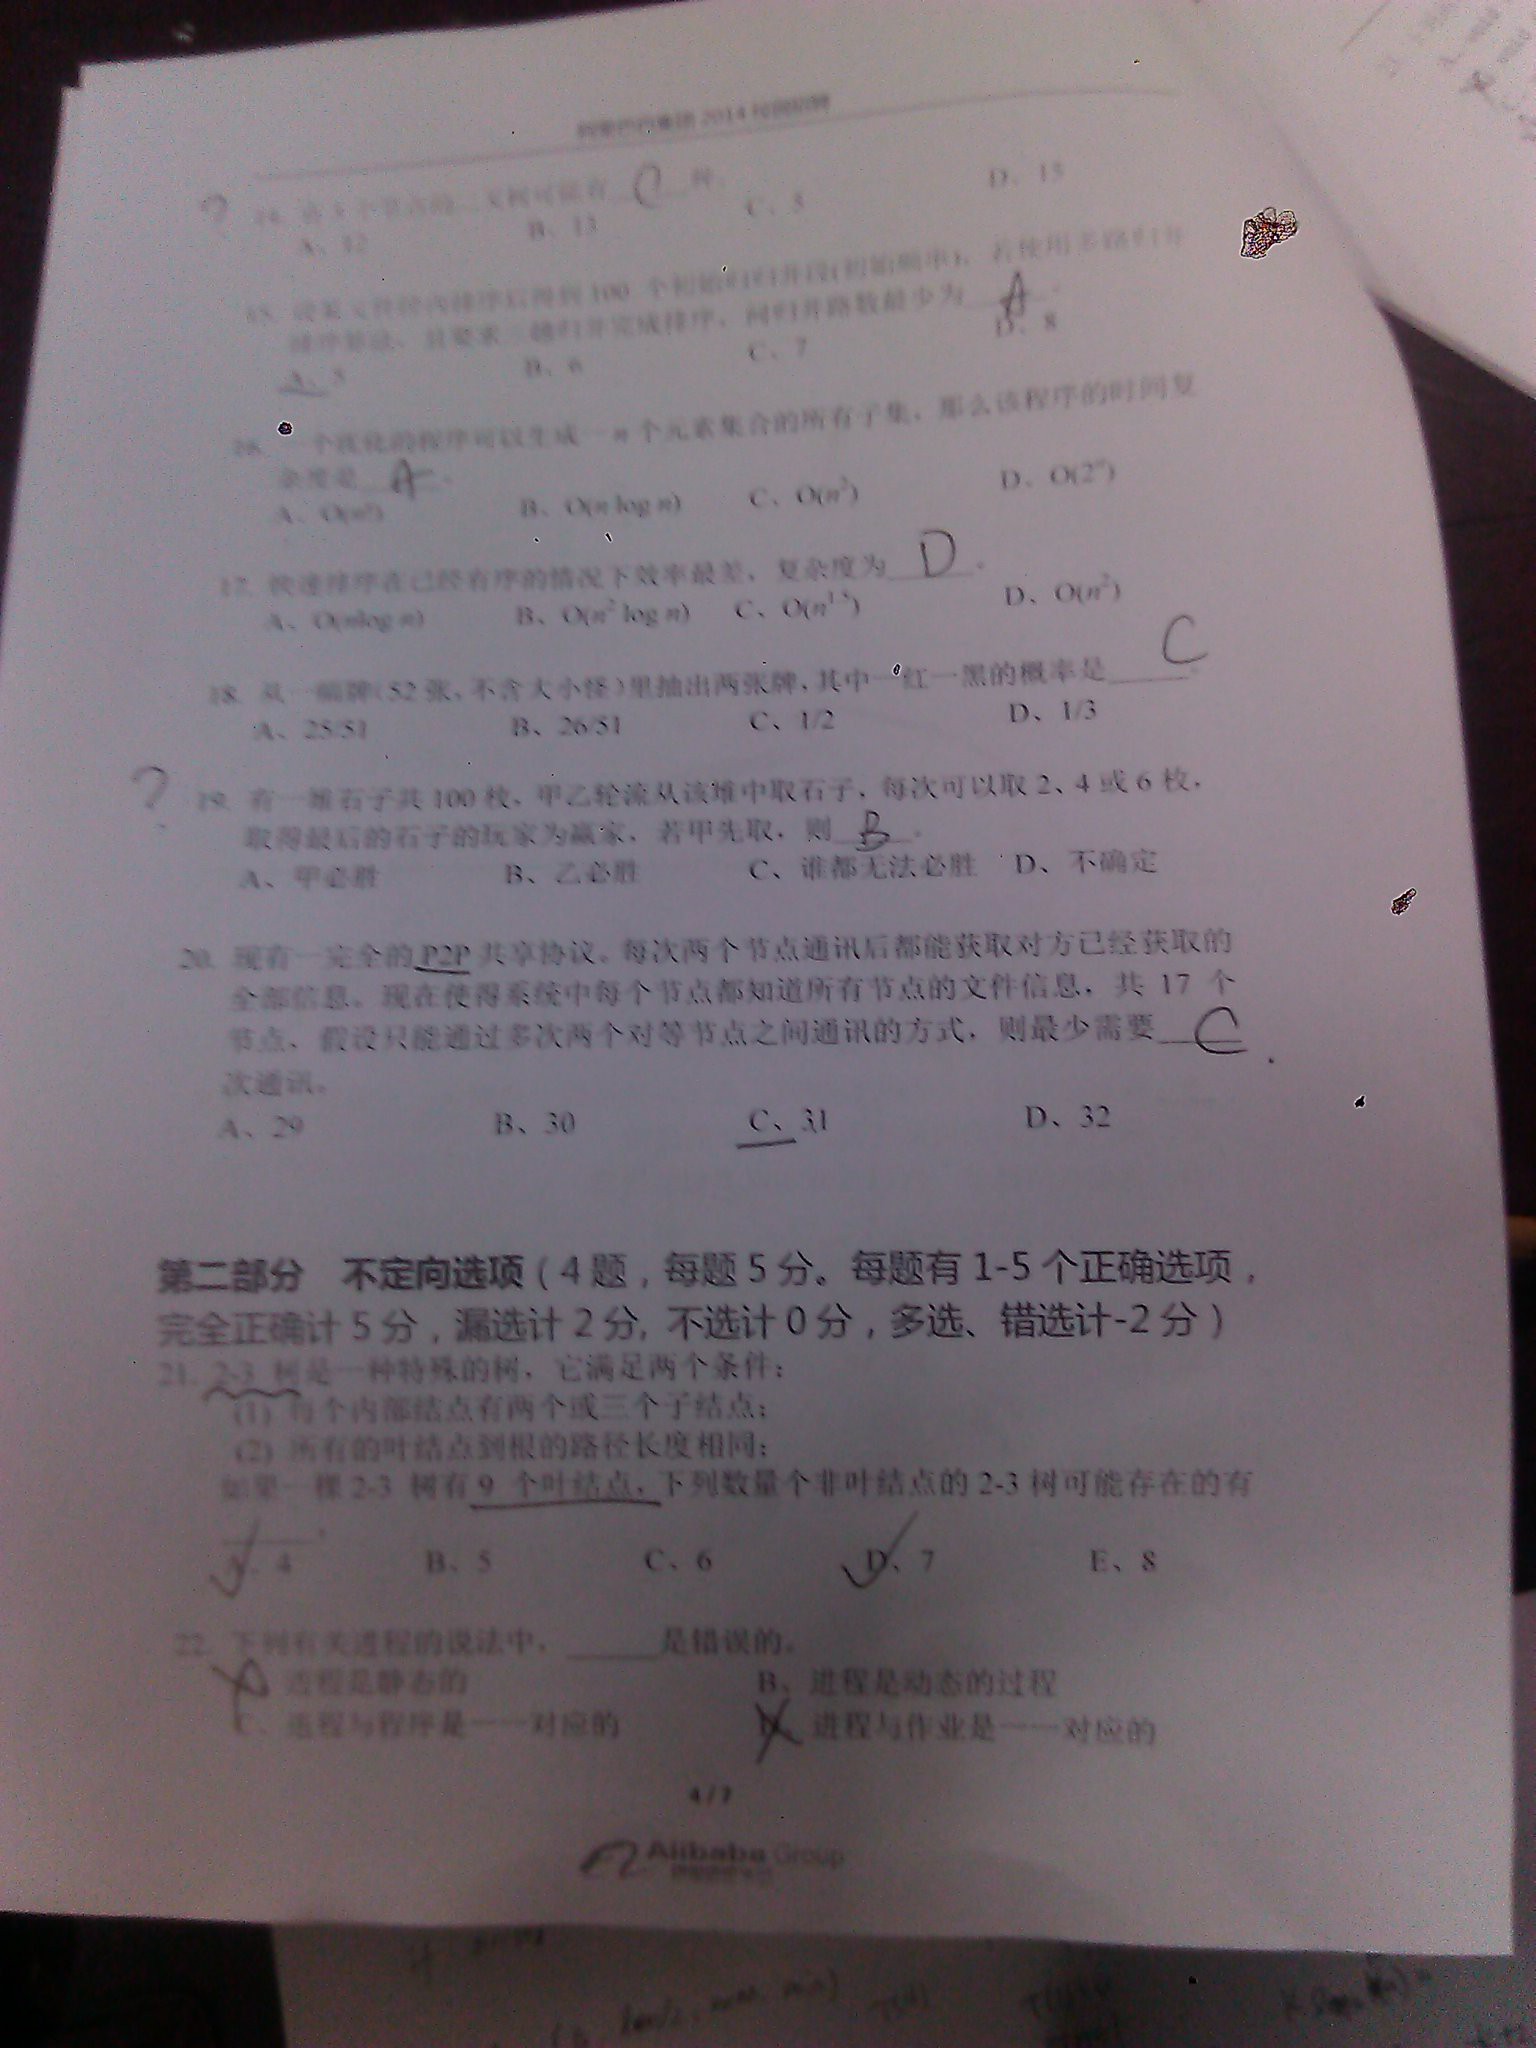 2014
? 14. 有 3 个节点的二叉树可能有 C 种.
A、12 B、13 C、5 D、15
15. 设某文件经内排序后得到 100 个初始归并段(初始顺串)，若使用多路归并
排序算法，且要求三趟归并完成排序，问归并路数最少为 A 。
A、5 B、6 C、7 D、8
16. 一个优化的程序可以生成一 n 个元素集合的所有子集，那么该程序的时间复
杂度是 A 。
A、O(n!) B、O(n log n) C、O(n²) D、O(2ⁿ)
17. 快速排序在已经有序的情况下效率最差，复杂度为 D 。
A、O(nlog n) B、O(n² log n) C、O(n¹·⁵) D、O(n²)
18. 从一幅牌(52 张,不含大小怪)里抽出两张牌,其中一红一黑的概率是 C 。
A、25/51 B、26/51 C、1/2 D、1/3
? 19. 有一堆石子共 100 枚，甲乙轮流从该堆中取石子，每次可以取 2、4 或 6 枚，
取得最后的石子的玩家为赢家，若甲先取，则 B 。
A、甲必胜 B、乙必胜 C、谁都无法必胜 D、不确定
20. 现有一完全的 P2P 共享协议。每次两个节点通讯后都能获取对方已经获取的
全部信息。现在使得系统中每个节点都知道所有节点的文件信息，共 17 个
节点，假设只能通过多次两个对等节点之间通讯的方式，则最少需要 C
次通讯。
A、29 B、30 C、31 D、32
第二部分 不定向选项（4 题，每题 5 分。每题有 1-5 个正确选项，
完全正确计 5 分，漏选计 2 分, 不选计 0 分，多选、错选计-2 分）
21. 2-3 树是一种特殊的树，它满足两个条件：
(1) 每个内部结点有两个或三个子结点；
(2) 所有的叶结点到根的路径长度相同；
如果一棵 2-3 树有 9 个叶结点，下列数量个非叶结点的 2-3 树可能存在的有
______.
A、4 B、5 C、6 D、7 E、8
22. 下列有关进程的说法中，______是错误的。
A、进程是静态的 B、进程是动态的过程
C、进程与程序是一一对应的 D、进程与作业是一一对应的
4 / 7
Alibaba Group